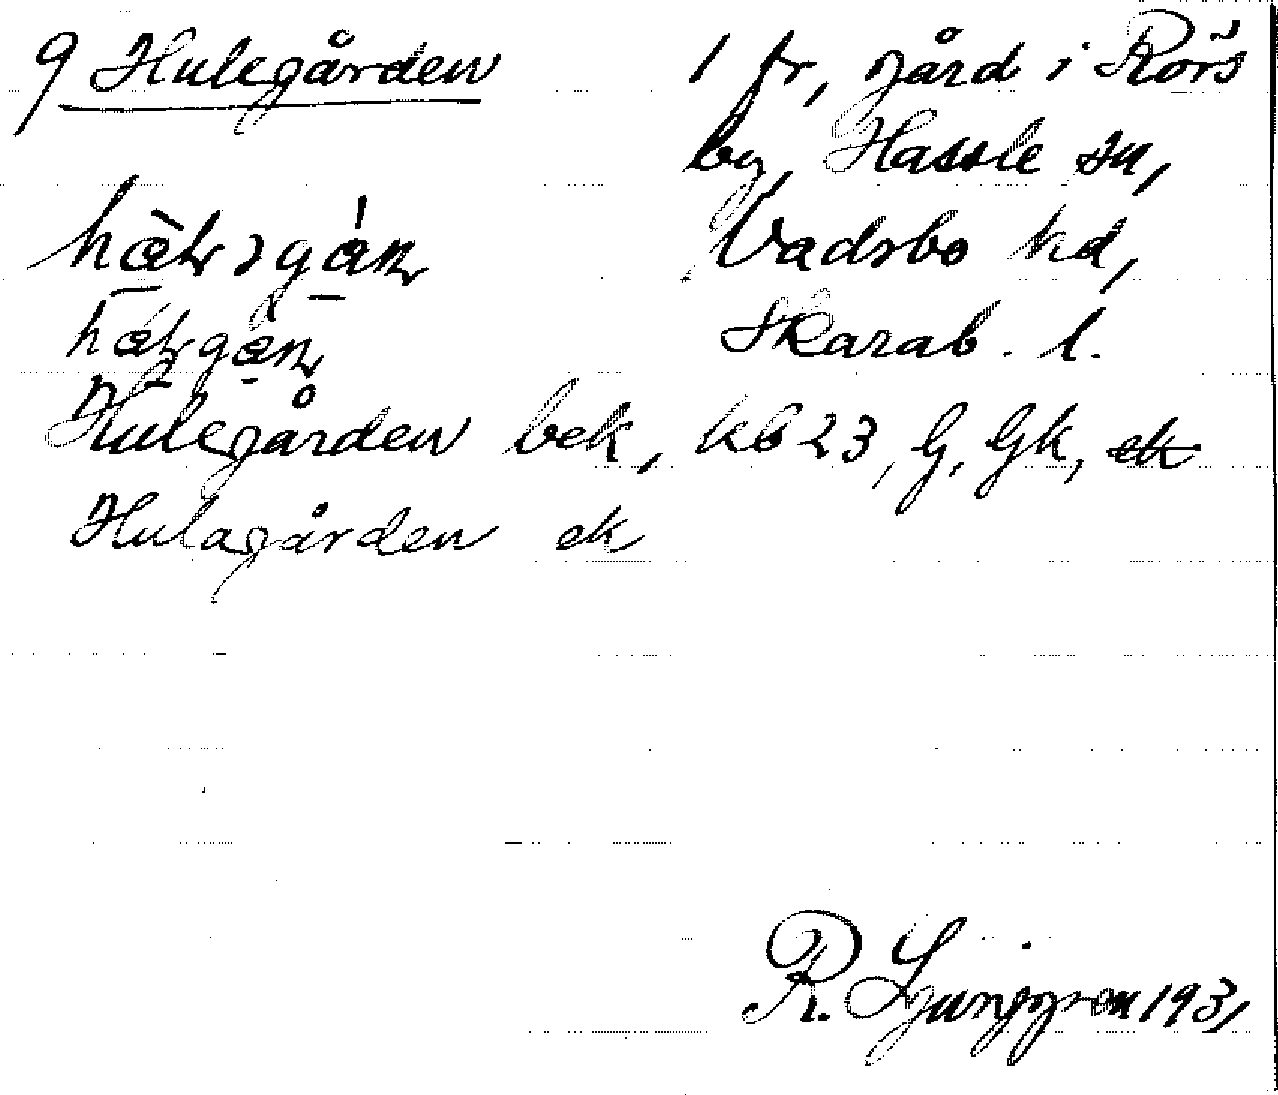 9 Hulegården 1 fr, gård i Rörs
by, Hassle sn,
Vadsbo hd,
Skarab. l.
Hulegården bek, kb 23, G, Gk, ek
Hulagården ek
R. Ljunggren 1931